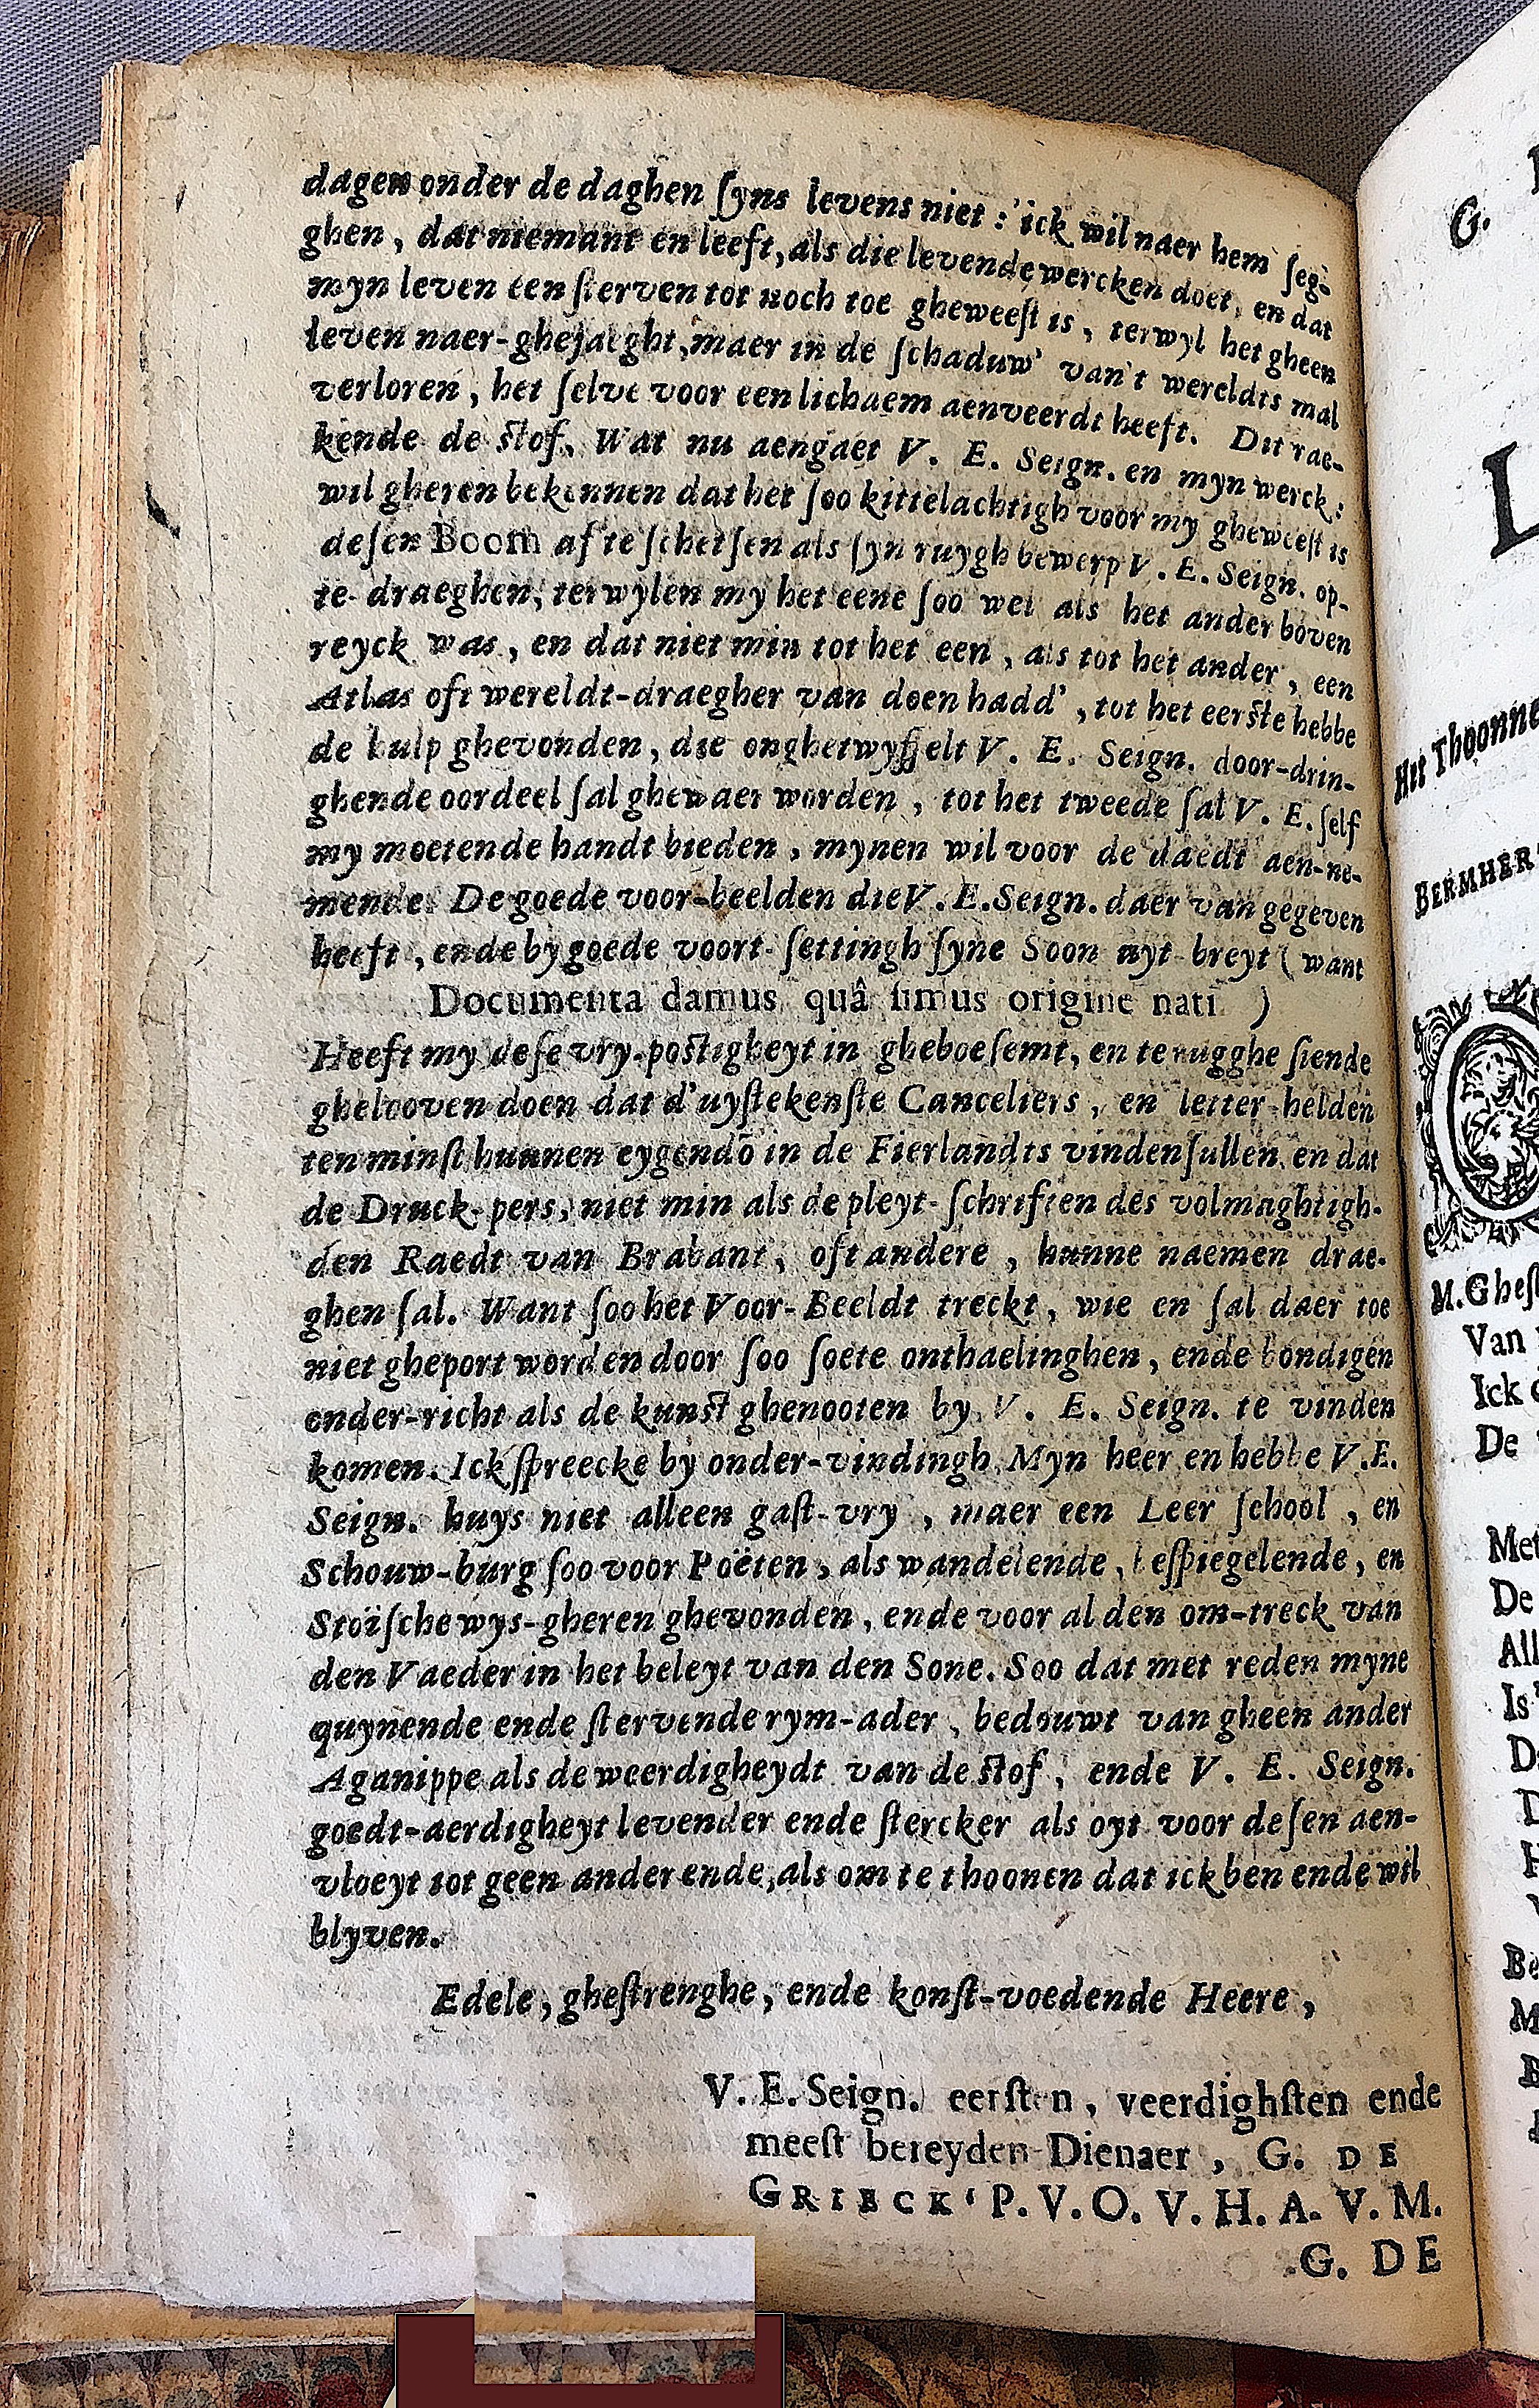 dagen onder de daghen ſyns levens niet : ick wil naer hem ſeg-
ghen , dat niemant en leeft, als die levende wercken doet, en dat
myn leven een ſterven tot noch toe gheweeſt is , terwyl het gheen
leven naer-ghejaeght, maer in de ſchaduw' van't wereldts mal
verloren , het ſelve voor een lichaem aenveerdt heeft. Dit rae-
kende de stof. Wat nu aengaet V. E. Seign. en myn werck:
wil gheren bekennen dat het ſoo kittelachtigh voor my gheweeſt is
deſen Boom af te ſchetſen als ſyn ruygh bewerp V. E. Seign. op-
te-draeghen, terwylen my het eene ſoo wel als het ander boven
reyck was , en dat niet min tot het een , als tot het ander , een
Atlas oft wereldt-draegher van doen hadd' , tot het eerste hebbe
de hulp ghevonden, die onghetwyffelt V. E. Seign. door-drin-
ghende oordeel ſal ghewaer worden , tot het tweede ſal V. E. ſelf
my moetende handt bieden , mynen wil voor de daedt aen-ne-
mende. De goede voor-beelden die V. E. Seign. daer van gegeven
heeft , ende by goede voort-ſettingh ſyne Soon uyt-breyt ( want
Documenta damus quâ ſimus origine nati )
Heeft my deſe vry-postigheyt in gheboeſemt, en terugghe ſiende
ghelooven doen dat d'uyſtekenſte Canceliers , en letter-helden
ten minſt hunnen eygendō in de Fierlandts vinden ſullen, en dat
de Druck-pers, niet min als de pleyt-ſchriften des volmaghtigh-
den Raedt van Brabant, oft andere , hunne naemen drae-
ghen ſal. Want ſoo het Voor-Beeldt treckt, wie en ſal daer toe
niet gheport worden door ſoo ſoete onthaelinghen, ende bondigen
onder-richt als de kunst ghenooten by V. E. Seign. te vinden
komen. Ick ſpreecke by onder-vindingh, Myn heer en hebbe V.E.
Seign. huys niet alleen gaſt-vry , maer een Leer ſchool , en
Schouw-burg ſoo voor Poëten, als wandelende, beſpiegelende, en
Stoïſche wys-gheren ghevonden, ende voor al den om-treck van
den Vaeder in het beleyt van den Sone. Soo dat met reden myne
quynende ende ſtervende rym-ader , bedouwt van gheen ander
Aganippe als de weerdigheydt van de stof, ende V. E. Seign.
goedt-aerdigheyt levender ende ſtercker als oyt voor deſen aen-
vloeyt tot geen ander ende, als om te thoonen dat ick ben ende wil
blyven.
Edele, gheſtrenghe, ende konſt-voedende Heere ,
V. E. Seign. eerſten , veerdighſten ende
meeſt bereyden Dienaer , G. DE
GRIECK' P. V. O. V. H. A. V. M.
G. DE
G.
L
Het Thoonne
M. Gheſ
Van
Ick
De
Met
De
All
Is